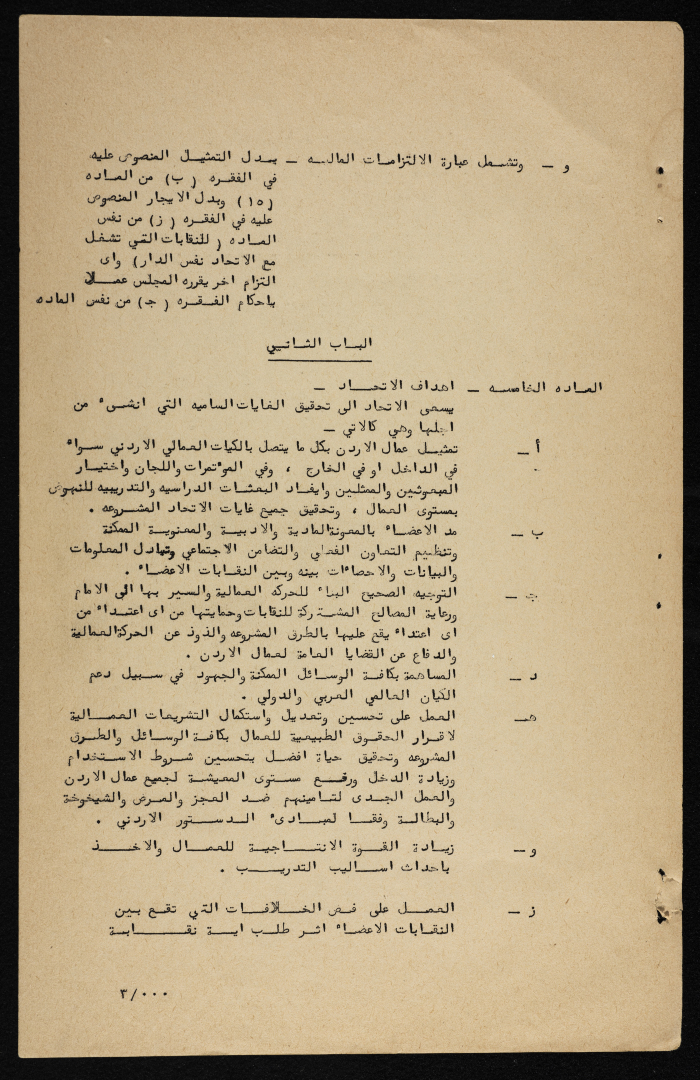 و — وتشمل عبارة الالتزامات الماليه — بدل التمثيل المنصوص عليه
في الفقره ( ب) من الماده
(١٥) وبدل الايجار المنصوص
عليه في الفقره ( ز) من نفس
الماده ( للنقابات التي تشغل
مع الاتحاد نفس الدار) واى
التزام اخر يقرره المجلس عملا
باحكام الفقره ( ج) من نفس الماده
الباب الثاني
الماده الخامسه — اهداف الاتحاد —
يسعى الاتحاد الى تحقيق الغايات الساميه التي انشىء من
اجلها وهي كالاتي —
أ — تمثيل عمال الاردن بكل ما يتصل بالكيات العمالي الاردني سواء
في الداخل او في الخارج ، وفي المؤتمرات واللجان واختيار
المبعوثين والممثلين وايفاد البعثات الدراسيه والتدريبيه للنهوض
بمستوى العمال ، وتحقيق جميع غايات الاتحاد المشروعه .
ب — مد الاعضاء بالمعونة المادية والادبية والمعنوية الممكنة
وتنظيم التعاون الفعلي والتضامن الاجتماعي وتبادل المعلومات
والبيانات والاحصاءات بينه وبين النقابات الاعضاء .
ج — التوجيه الصحيح البناء للحركه العمالية والسير بها الى الامام
ورعاية المصالح المشتركة للنقابات وحمايتها من اى اعتداء من
اى اعتداء يقع عليها بالطرق المشروعه والذود عن الحركة العمالية
والدفاع عن القضايا العامة لعمال الاردن .
د — المساهمة بكافة الوسائل الممكنة والجهود في سبيل دعم
الكيان العالمي العربي والدولي .
هـ — العمل على تحسين وتعديل واستكمال التشريعات العمالية
لاقرار الحقوق الطبيعية للعمال بكافة الوسائل والطرق
المشروعه وتحقيق حياة افضل بتحسين شروط الاستخدام
وزيادة الدخل ورفع مستوى المعيشة لجميع عمال الاردن
والعمل الجدى لتامينهم ضد العجز والمرض والشيخوخة
والبطالة وفقا لمبادىء الدستور الاردني .
و — زيادة القوة الانتاجية للعمال والاخذ
باحداث اساليب التدريب .
ز — العمل على فض الخلافات التي تقع بين
النقابات الاعضاء اثر طلب اية نقابة
٣/٠٠٠